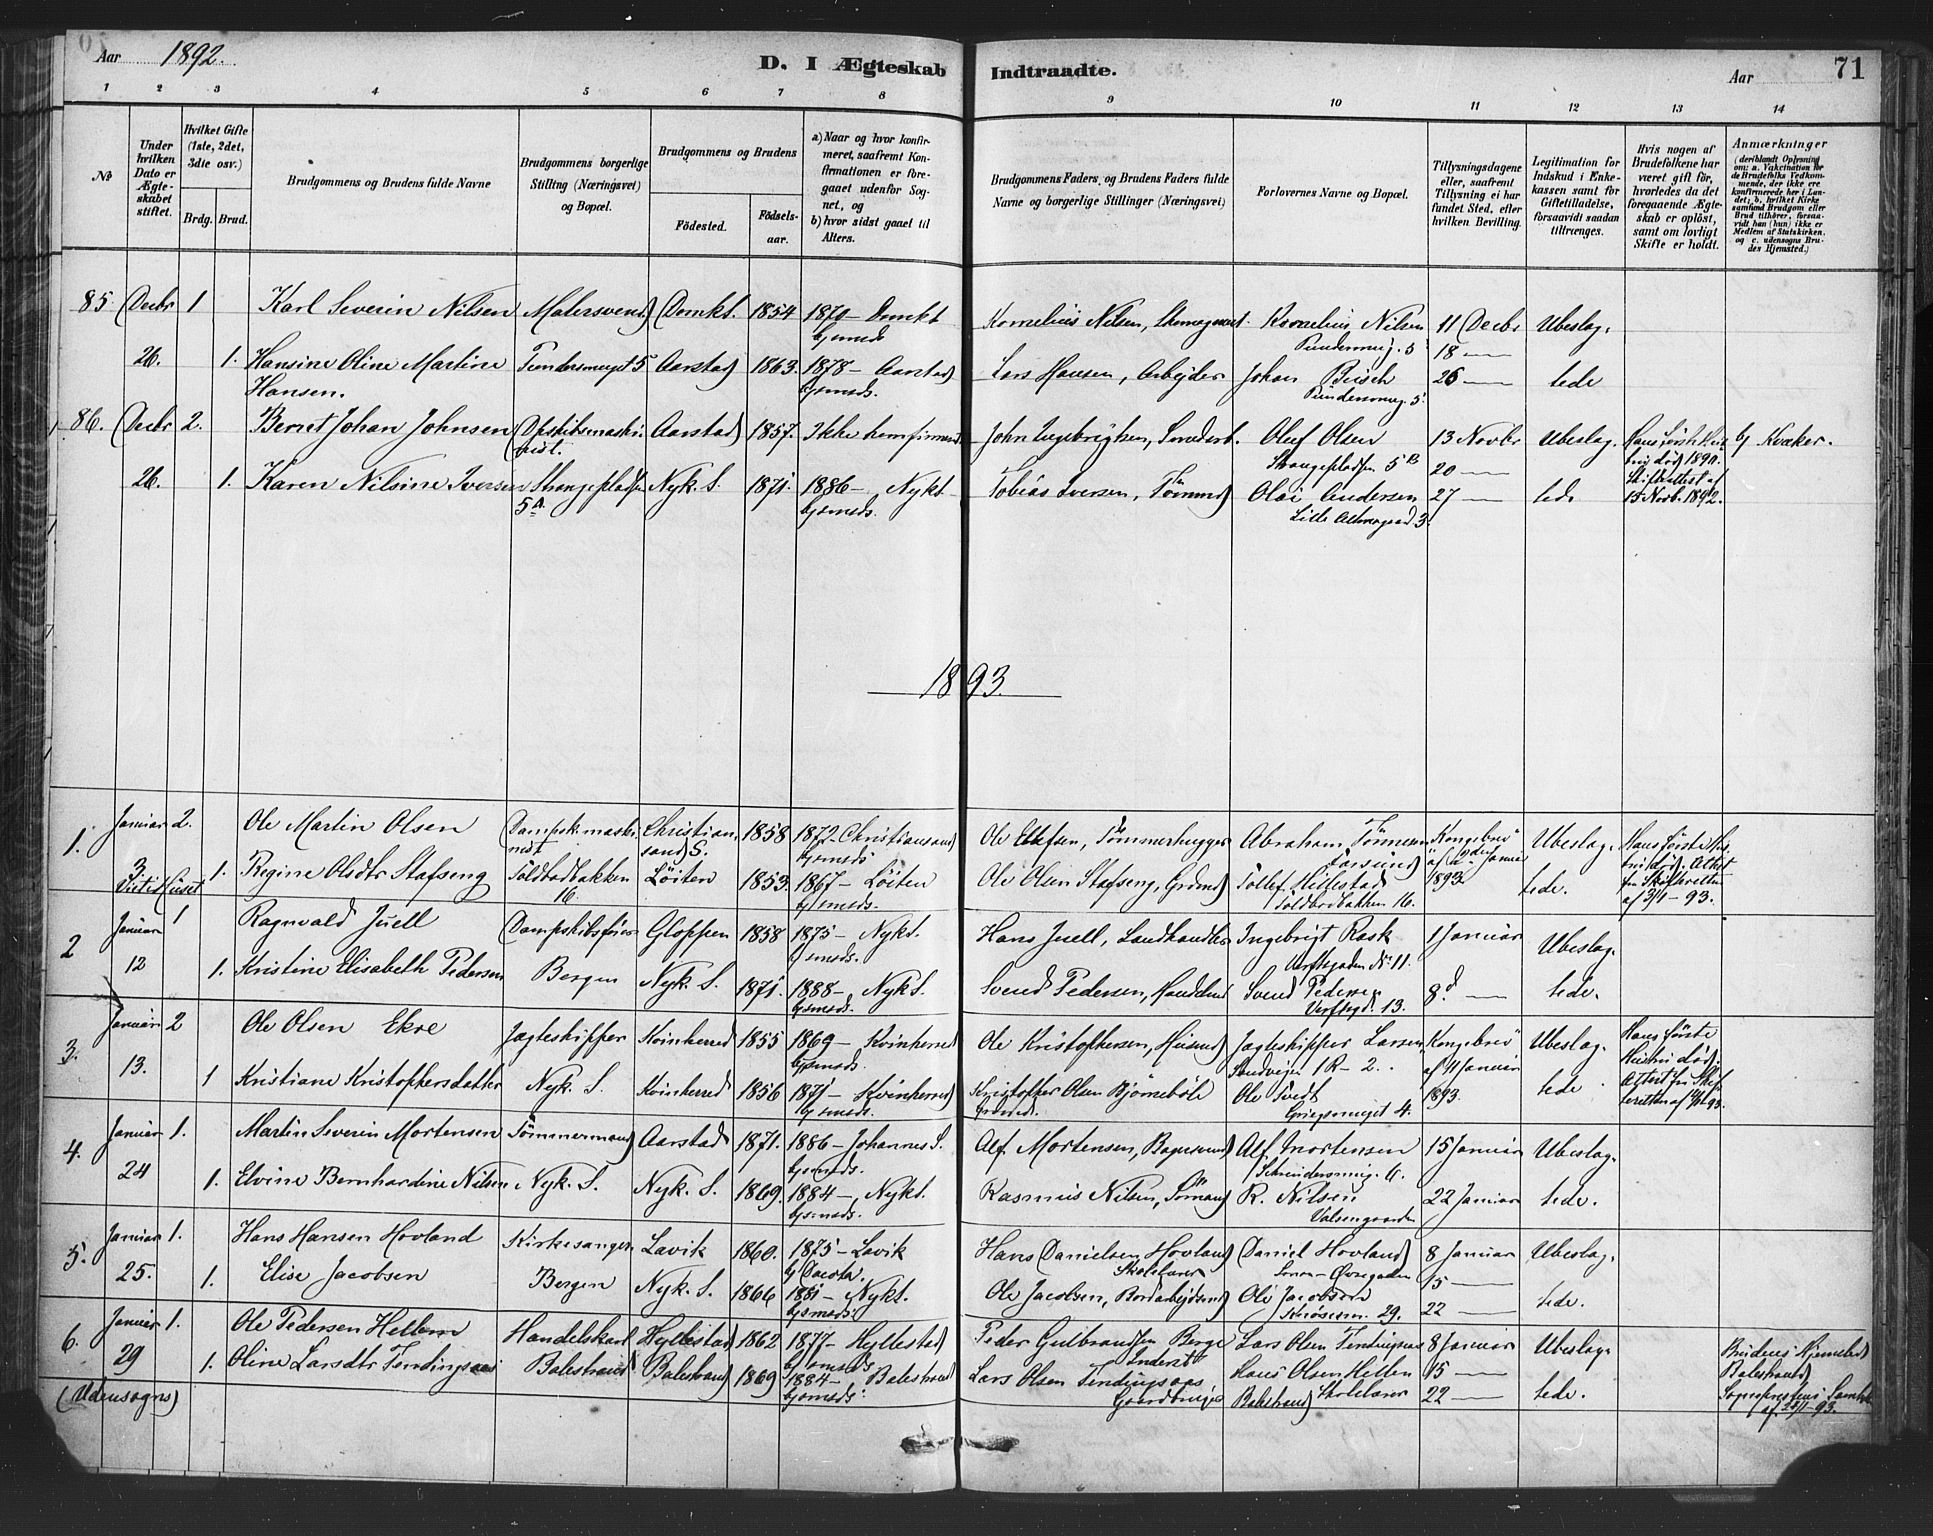 Aar 1892.
D. I Ægteskab Indtraadte.
Aar
71
1 2 3 4 5 6 7 8 9 10 11 12 13 14
No
Under hvilken Dato er Ægteskabet stiftet.
Hvilket Gifte (1ste, 2det, 3die osv.)
Brdg. Brud.
Brudgommens og Brudens fulde Navne
Brudgommens borgerlige Stilling (Næringsvei) og Bopæl.
Brudgommens og Brudens
Fødested. Fødselsaar.
a) Naar og hvor konfirmeret, saafremt Konfirmationen er foregaaet udenfor Sognet, og
b) hvor sidst gaaet til Alters.
Brudgommens Faders og Brudens Faders fulde Navne og borgerlige Stillinger (Næringsvei)
Forlovernes Navne og Bopæl.
Tillysningsdagene eller, saafremt Tillysning ei har fundet Sted, efter hvilken Bevilling.
Legitimation for Indskud i Enkekassen samt for Giftetilladelse, forsaavidt saadan tiltrænges.
Hvis nogen af Brudefolkene har været gift før, hvorledes da det foregaaende Ægteskab er opløst, samt om lovligt Skifte er holdt.
Anmærkninger
(deriblandt Oplysning om: a. Vakcination for de Brudefolks Vedkommende, der ikke ere konfirmerede her i Landet; b. hvilket Kirkesamfund Brudgom eller Brud tilhører, forsaavidt han (hun) ikke er Medlem af Statskirken. og c. udensogns Brudes Hjemsted.)
85. Decbr 1 Karl Severin Nilsen Malersvend Domkt. 1854 1870 - Domkt Kornelius Nilsen, Kornelius Nilsen 11 Decbr Ubeslag.
bjsmeds 18 —
26. 1. Hansine Oline Martine 5 Aarstad 1863. 1878 - Aarstad Lars Hansen, Arbejder Johan 26 — tede
Hansen. bjsmeds.
86. Decbr 2. Berret Johan Johnsen Aarstad 1857. Ikke John Ingebrigtsen, Oluf Olsen 13 Novbr Ubeslag. Hans første b) Kvæker.
Strangepladsen 5 B 20 — død 1890.
26. 1. Karen Nilsine Iversen Strangepladsen Nyk. S. 1871. 1886 - Nykt Tobias Iversen, Tømmd Olai Andersen 27 — tede Skifteattest af
5 A. bjsmeds. Lille 3. 15 Novb. 1892.
1893.
1. Januar 2. Ole Martin Olsen Dampsk.maski- Christian- 1858 1872 - Christiansand Ole Tømmerhugger Abraham Tønnesen Kongebrev Ubeslag. Hans første
nist sand S. bjsmeds Farsund af 2den Januar død. Attest
3 1. Regine Olsdtr Stafseng Toldbodbakken Løiten 1853. 1867 - Løiten Ole Olsen Stafseng, Grdmd Tollef Hillestad 1893. tede. fra Skifteretten
Viet i Huset 16. bjsmeds. Toldbodbakken 16. af 3/1 - 93.
2 Januar 1 Ragnvald Juell Dampskibsfører Gloppen 1858 1875 - Nykt. Hans Juell, Landhandler Ingebrigt Rask 1 Januar Ubeslag.
bjsmeds. Verftsgaden No 11.
12 1. Kristine Elisabeth Pedersen Bergen Nyk. S. 1871. 1888 - Nykt. Svend Pedersen, Svend Pedersen 8d — tede.
bjsmeds. Verftsgd. 13.
3. Januar 2 Ole Olsen Ekre Jagteskipper Kvinherred 1855 1869 - Kvinherred Ole Kristophersen, Husmd Jagteskipper Larsen Kongebrev Ubeslag. Hans første
bjsmeds. Sandvigen 1 R - 2. af 11 Januar Hustru død.
13. 1 Kristiane Kristophersdatter Nyk. S. Kvinherred 1856 1871 - Kvinherred Kristopher Olsen Bjørnebøle Ole Tvedt 1893. tede. Attest fra Skif-
bjsmeds. Grdmd. Griegsmuget 4. teretten af
4. Januar 1. Martin Severin Mortensen Tømmermand Aarstad 1871. 1886 - Johannes S. Alf Mortensen, Alf Mortensen 15 Januar Ubeslag.
bjsmeds.
24 1. Elvine Bernhardine Nilsen Nyk. S. Nyk. S. 1869. 1884 - Nykt. Rasmus Nilsen, Sømand R. Nilsen 22 Januar tede.
bjsmeds.
5. Januar 1. Hans Hansen Hovland Kirkesanger Lavik 1860. 1875 - Lavik Hans Danielsen Hovland Daniel Hovland 8 Januar Ubeslag.
b) Dacota. Skolelærer Øvregaden 15 —
25. 1. Elise Jacobsen Bergen Nyk. S. 1866 1881 - Nykt. Ole Jacobsen, Bordarbejdsmd Ole Jacobsen 22 — tede.
bjsmeds. 29.
6. Januar 1. Ole Pedersen Hellem Handelskarl Hyllestad 1862 1877 - Hyllestad Peder Gulbrandsen Berge Lars Olsen 8 Januar Ubeslag. Brudens Hjemsted
bjsmeds Inderst 15 — Balestrand
29 1. Oline Larsdtr Balestrand Balestrand 1869 1884 - Balestrand Lars Olsen Hans Olsen Hellem 22 — tede. Sognepræstens
(Udensogns) bjsmeds. Gaardbruger Balestrand Skolelærer af 25/1 - 93.